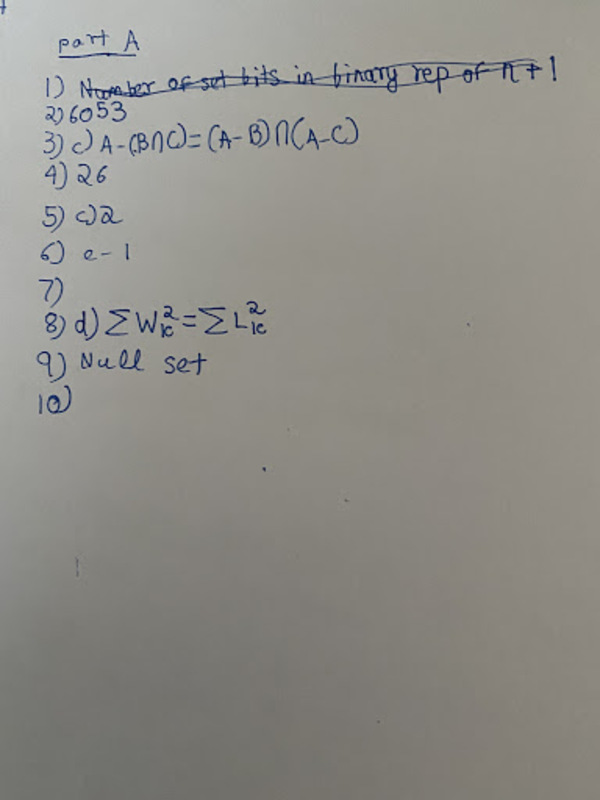 part A
1) Number of set bits in binary rep of n + 1
2) 6053
3) c) A-(B∩C)=(A-B)∩(A-C)
4) 26
5) c) 2
6) e - 1
7)
8) d) ∑W²ₖ = ∑L²ₖ
9) Null set
10)